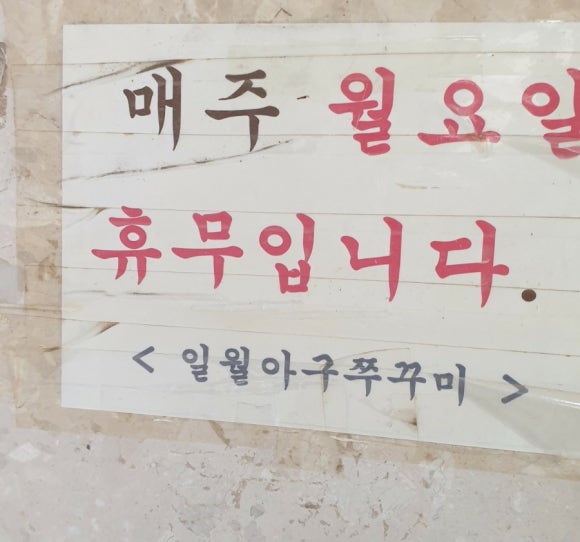 매주 월요일
휴무입니다.
< 일월아구쭈꾸미 >